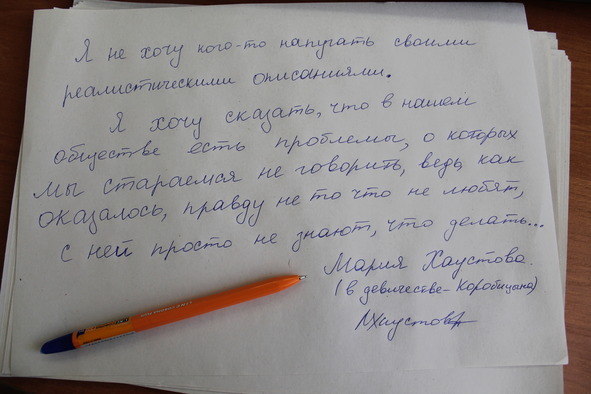 Я не хочу кого-то напугать своими
реалистическими описаниями.
Я хочу сказать, что в нашем
обществе есть проблемы, о которых
мы стараемся не говорить, ведь как
оказалось, правду не то что не любят,
с ней просто не знают, что делать...
Мария Хаустова.
(в девичестве - Коробицына)
МХаустова